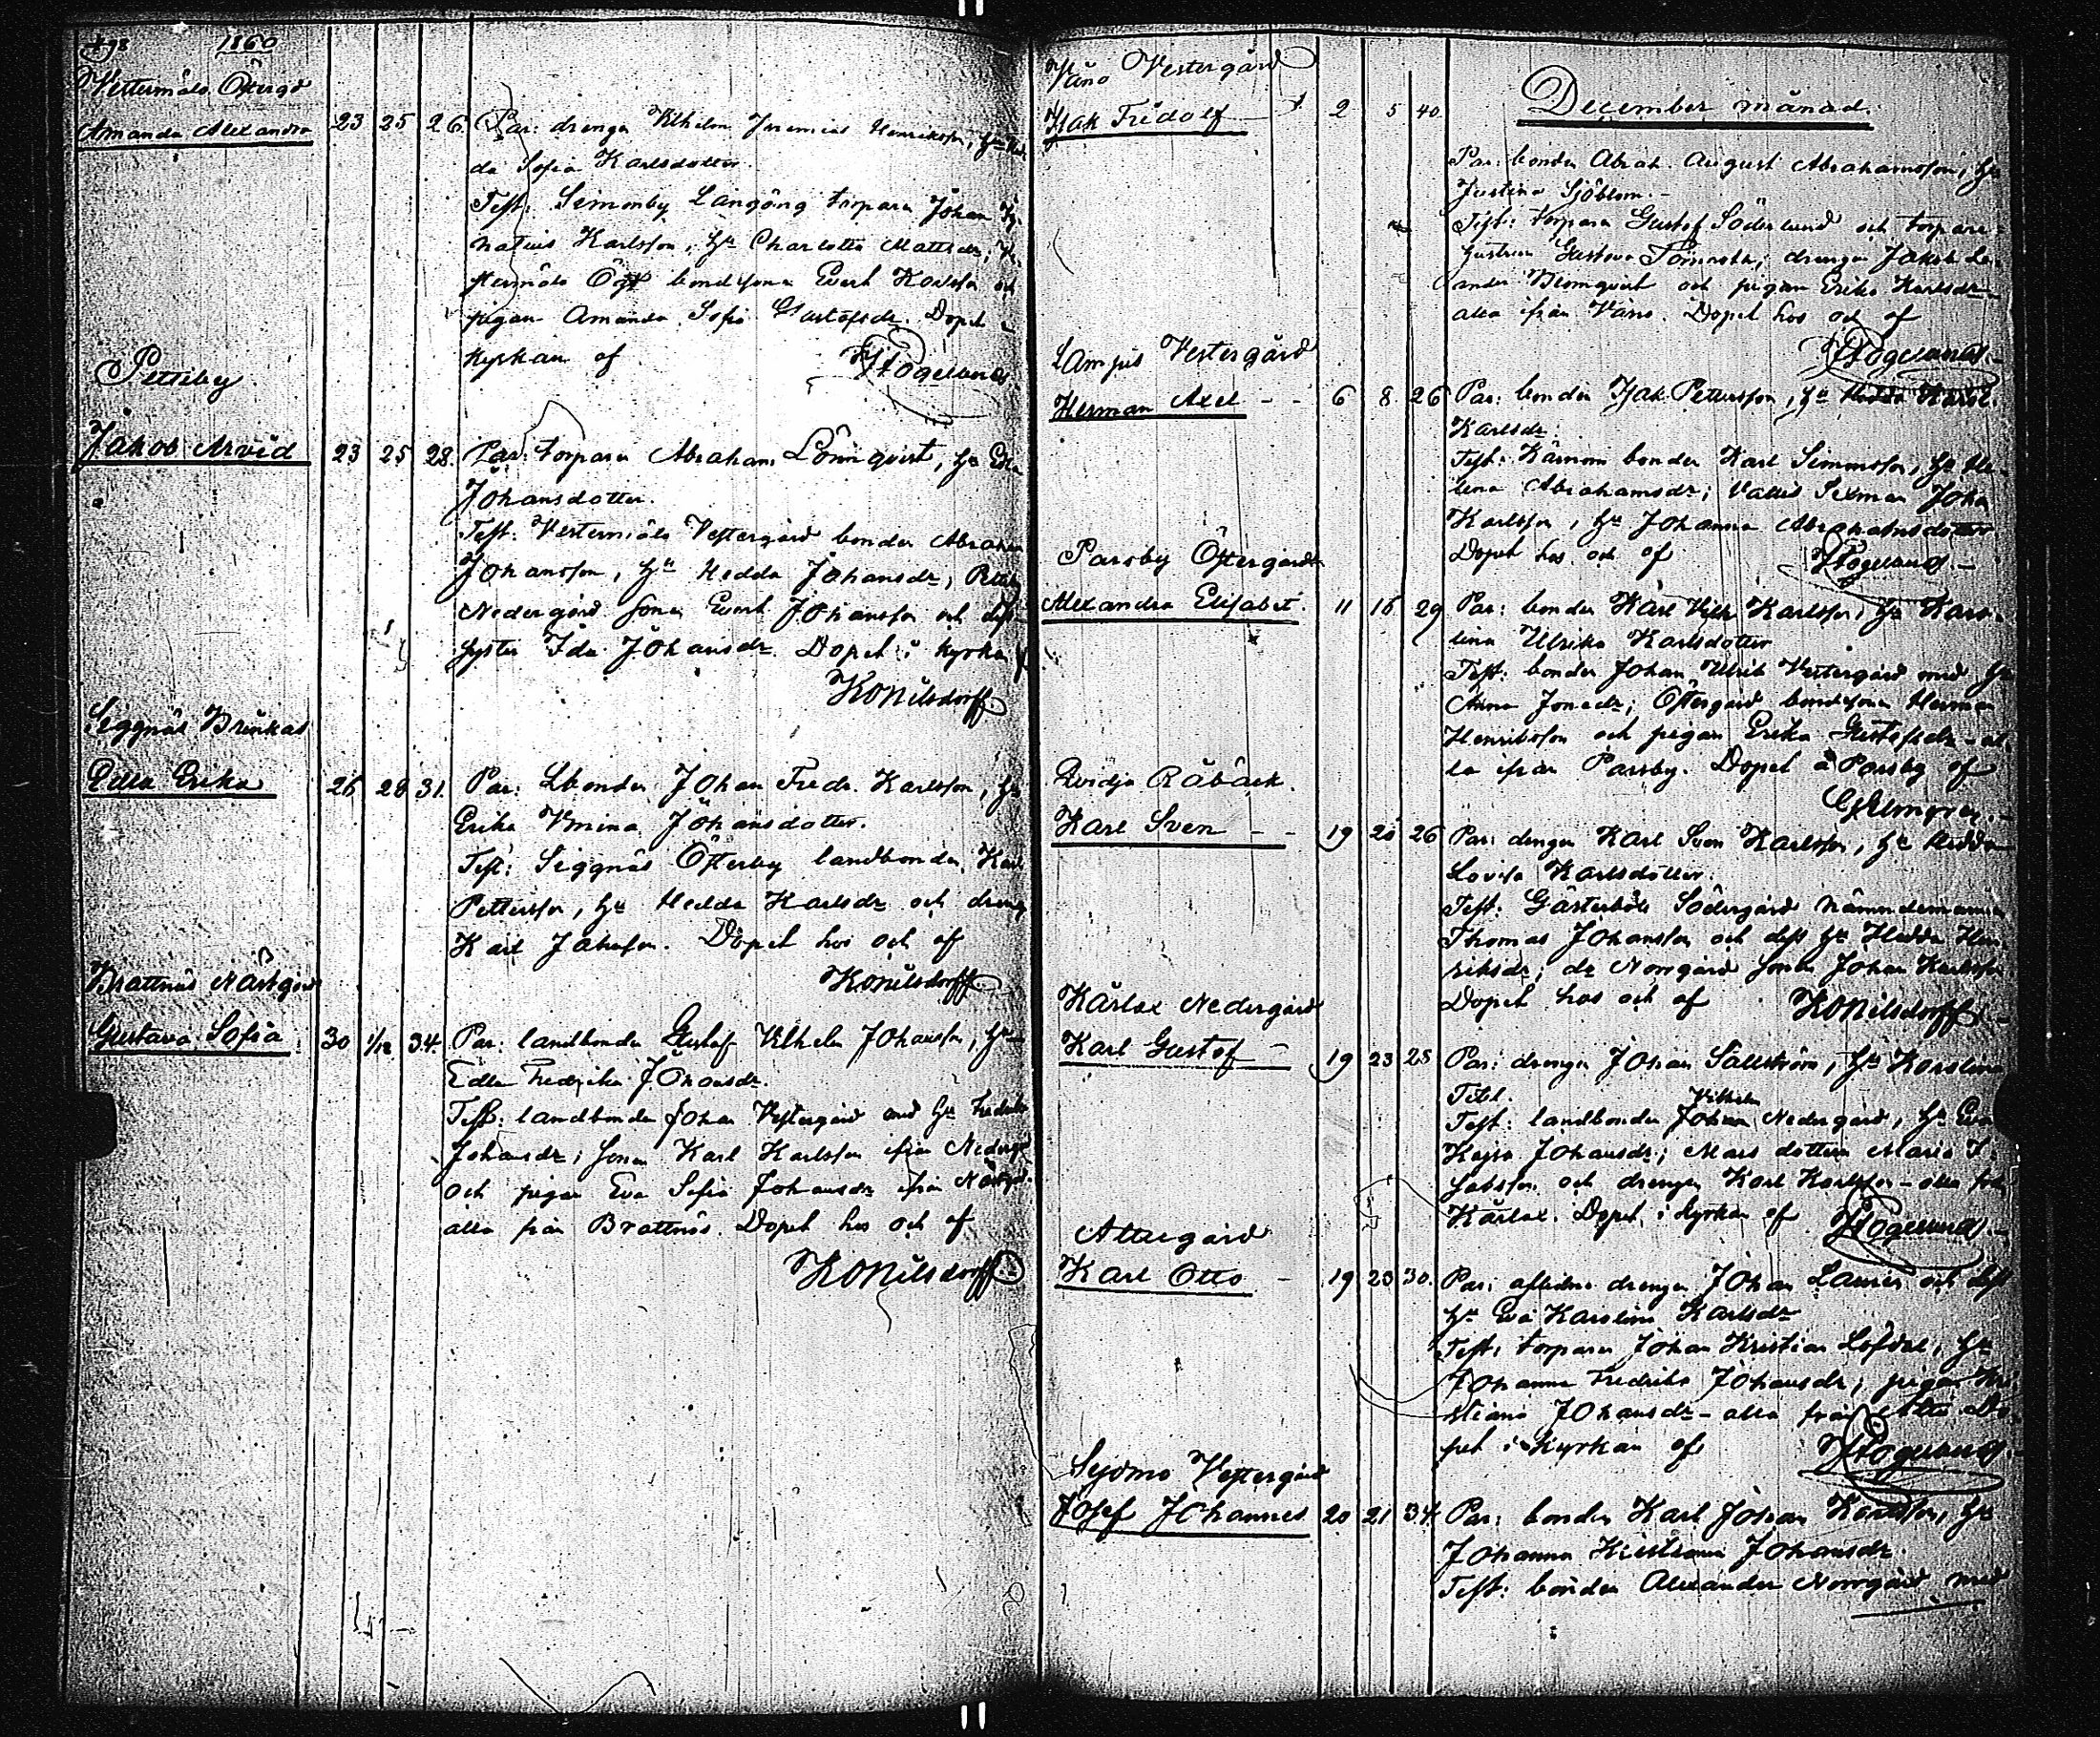 1860
Vettermälo Östergd
Amanda Alexandra 23 25 26. Par: drengen Vilhelm Jeremias Henriksson, hu
da Sofia Karlsdotter.
Test: Simonby Långäng torparen Johan Ig-
natius Karlsson, hu Charlotta Mattsdr;
bondesonen Evert Karlsson och
pigan Amanda Sofia Gustafsdr. Döpet i
kyrkan af Högelund
Petteby
Jakob Arvid 23 25 28. Par: torparen Abraham Lönnqvist, hu Edla
Johansdotter.
Test: Vestermälo Vestergård bonden Abraham
Johansson, hu Hedda Johansdr,
Nedergård sonen Evert Johansson och dess
syster Ida Johansdr. Döpet i kyrkan af
KONilsdorff
Seggnäs Brinkas
Edla Erika 26 28 31. Par: Lbonden Johan Fredr. Karlsson, hu
Erika Vmina Johansdotter.
Test: Seggnäs Österby landbonden Karl
Pettersson, hu Hedda Karlsdr och dreng
Karl Johansson. Döpet hos och af
KONilsdorff
Brattnäs Norrgård
Gustava Sofia 30 1/12 34. Par: landbonden Gustaf Vilhelm Johansson, hu
Edla Fredrika Johansdr.
Test: landbonden Johan Vestergård med hu Fredrika
Johansdr; sonen Karl Karlsson ifrån Nedergd
och pigan Eva Sofia Johansdr ifrån Norrgd.
alla från Brattnäs. Döpet hos och af
KONilsdorff
Vänö Vestergård
Isak Fridolf 2 5 40. December månad.
Par: bonden Abrah. August Abrahamsson, hu
Justina Sjöblom.-
Test: torparen Gustaf Söderlund och torpare-
hustrun Gustava drengen Jakob Le-
ander Blomqvist och pigan Erika Karlsdr
alla ifrån Vänö. Döpet hos och af
Högelund.-
Lampis Vestergård
Herman Axel - - 6 8 26 Par: bonden Isak Pettersson, hu Karol.
Karlsdr.
Test: Kärnom bonden Karl Simonsson, hu He-
lena Abrahamsdr; Valtis Sexman Johan
Karlsson, hu Johanna Abrahamsdotter
Döpet hos och af Högelund.-
Parsby Östergård
Alexandra Elisabet. 11 15 29 Par: bonden Karl Vilh. Karlsson, hu Karo-
lina Ulrika Karlsdotter
Test: bonden Johan Ulrik Vestergård med hu
Anna Jonsdr; Östergård bondesonen Herman
Henriksson och pigan Erika Gustafsdr - al-
la ifrån Parsby. Döpet å Parsby af
Qvidja Råbäck.
Karl Sven - - 19 20 26 Par: drengen Karl Sven Karlsson, hu Hedda
Lovisa Karlsdotter.
Test: Gästerböle Södergård Nämndemannen
Thomas Johansson och dess hu Hedda Hen-
riksdr; dr Norrgård sonen Johan Karlsson
Döpet hos och af KONilsdorff.-
Kärlax Nedergård
Karl Gustaf - 19 23 25 Par: drengen Johan Sållström, hu Karolina
Test: landbonden Johan Vilhelm Nedergård, hu Eva
Kajsa Johansdr; Mårs dottern Maria
Jakobson och drengen Karl Karlsson - alla från
Kärlax. Döpet i kyrkan af Högelund.-
Attugård
Karl Otto - 19 23 30. Par: aflidne drengen Johan Laurén och dess
hu Eva Karolina Karlsdr
Test: torparen Johan Kristian Löfdal, hu
Johanna Fredrika Johansdr; pigan Kri-
stiana Johansdr - alla från Attu. Dö-
pet i kyrkan af Högelund
Sydmo Vestergård
Josef Johannes 20 21 34. Par: bonden Karl Johan Karlsson, hu
Johanna Kristiana Johansdr.
Test: bonden Alexander Norrgård med